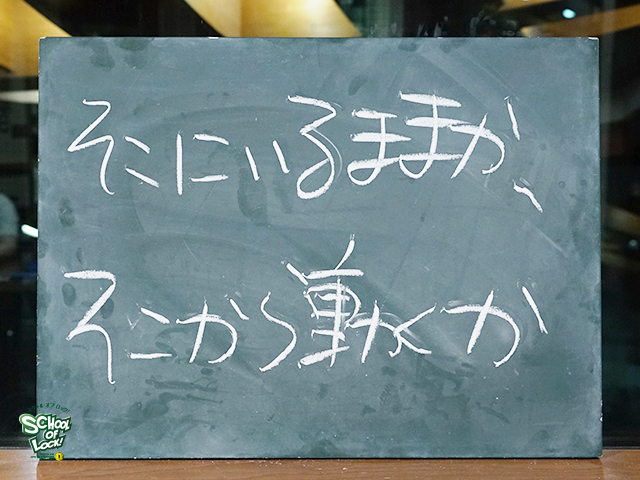 そこにいるままか、
そこから動くか
SCHOOL
OF
LOCK!